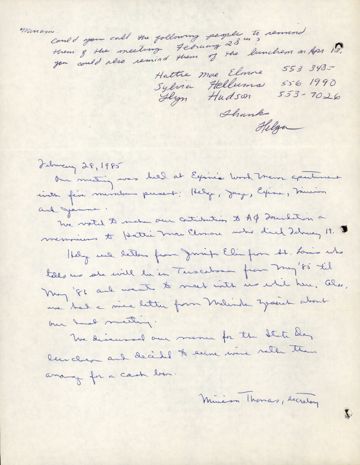 Miriam
Could you call the following people to remind
them of the meeting February 28th?
you could also remind them of the luncheon on Apr 13.
Hattie Mae Elmore 553 343
Sylvia 556 1990
Hudson 553-7026
Thanks
Helga
February 28, 1985
Our meeting was held at apartment
with five members present: Helga, Joy, Miriam
and
We voted to make our contribution to AΦ Foundation a
memoriam to Hattie Mae Elmore who died February 19.
Helga read letters from from St. Louis who
tells us she will be in Tuscaloosa from May '85 til
May '86 and wants to meet with us while here. Also,
we had a nice letter from Melinda about
our last meeting.
We discussed our menu for the State Day
luncheon and decided to serve wine rather than
arrange for a cash bar.
Miriam Thomas, secretary